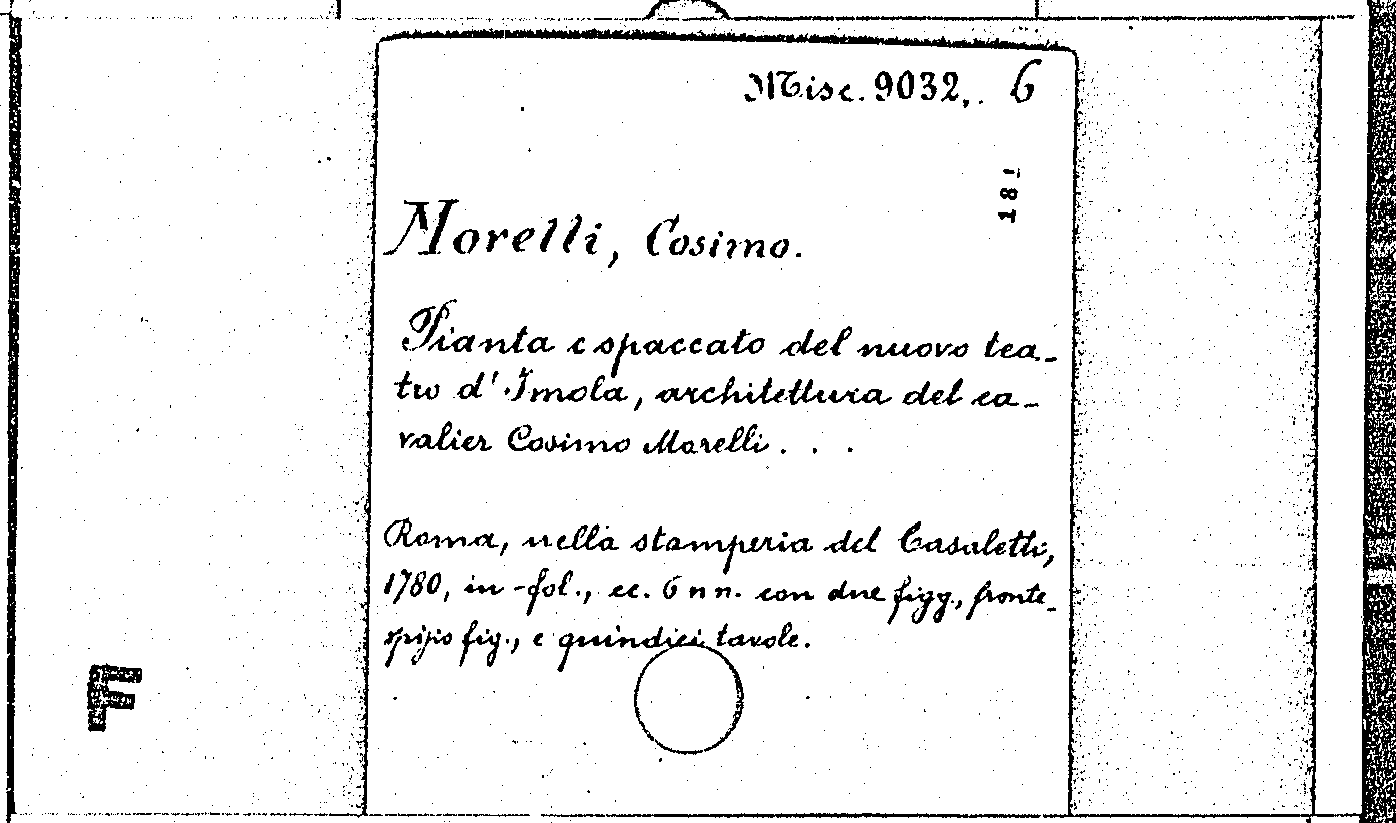 Misc. 9032, . 6
18
Morelli, Cosimo.
Pianta e spaccato del nuovo tea-
tro d'Imola, architettura del ca-
valier Cosimo Morelli . . .
Roma, nella stamperia del Casaletti,
1780, in-fol., cc. 6 nn. con due figg., fronte-
spizio fig., e quindici tavole.
F